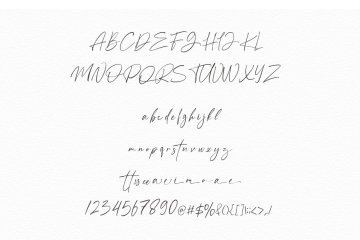 ABCDEFGHIJKL
MNOPQRSTUVWXYZ
abcdefghijkl
mnopqrstuvwxyz
1234567890@#$%&()[]!:;<>,./